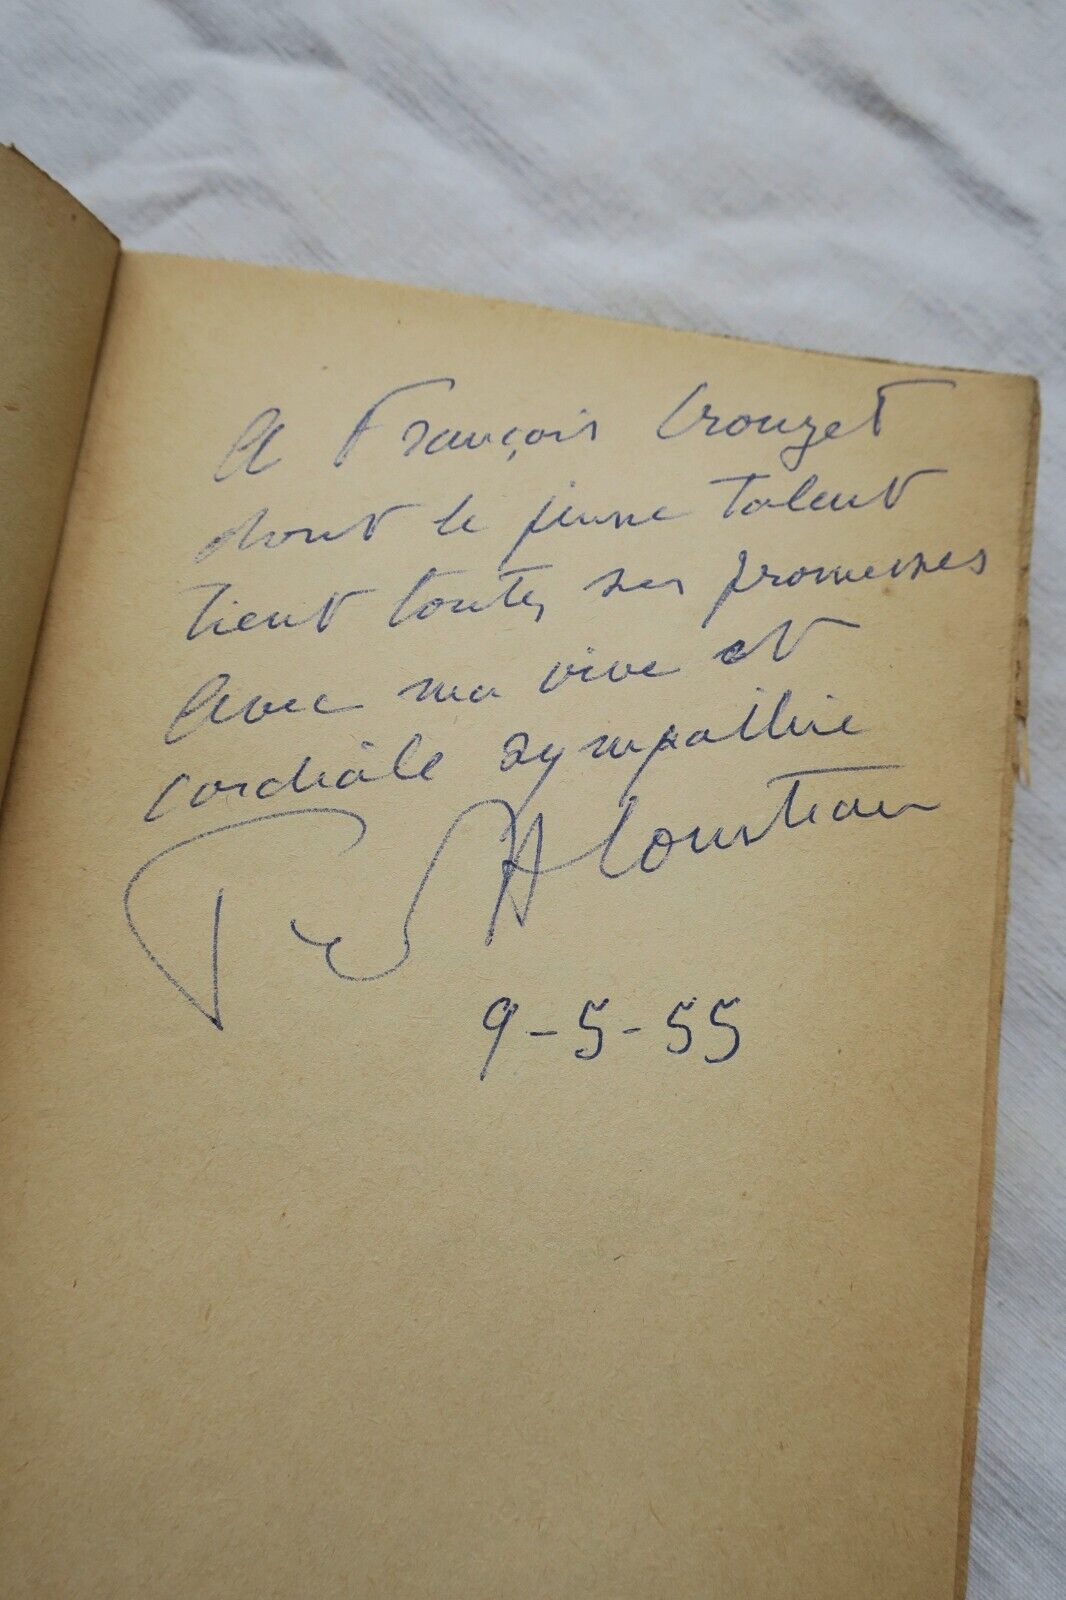 A François Crouzet
dont le jeune talent
tient toutes ses promesses
Avec ma vive et
cordiale sympathie
P A Cousteau
9-5-55